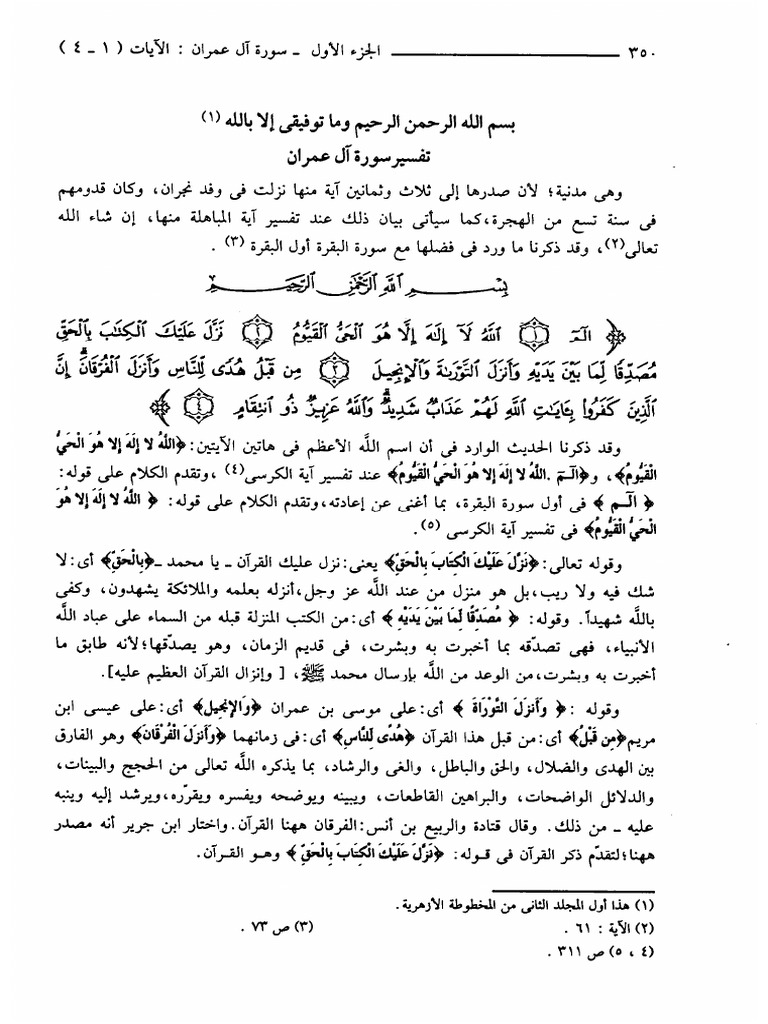 ٣٥٠ ــــــــــــ الجزء الأول ـ سورة آل عمران : الآيات ( ١ ـ ٤ )
بسم الله الرحمن الرحيم وما توفيقى إلا بالله (١)
تفسير سورة آل عمران
وهى مدنية؛ لأن صدرها إلى ثلاث وثمانين آية منها نزلت فى وفد نجران، وكان قدومهم
فى سنة تسع من الهجرة،كما سيأتى بيان ذلك عند تفسير آية المباهلة منها، إن شاء الله
تعالى(٢)، وقد ذكرنا ما ورد فى فضلها مع سورة البقرة أول البقرة (٣) .
بِسْمِ اللَّهِ الرَّحْمَٰنِ الرَّحِيمِ
﴿ الٓمٓ ١ اللَّهُ لَآ إِلَٰهَ إِلَّا هُوَ الْحَىُّ الْقَيُّومُ ٢ نَزَّلَ عَلَيْكَ الْكِتَٰبَ بِالْحَقِّ
مُصَدِّقًا لِّمَا بَيْنَ يَدَيْهِ وَأَنزَلَ التَّوْرَىٰةَ وَالْإِنجِيلَ ٣ مِن قَبْلُ هُدًى لِّلنَّاسِ وَأَنزَلَ الْفُرْقَانَۗ إِنَّ
الَّذِينَ كَفَرُوا۟ بِـَٔايَٰتِ اللَّهِ لَهُمْ عَذَابٌ شَدِيدٌۗ وَاللَّهُ عَزِيزٌ ذُو انتِقَامٍ ٤ ﴾
وقد ذكرنا الحديث الوارد فى أن اسم اللَّه الأعظم فى هاتين الآيتين: ﴿اللَّهُ لا إِلَهَ إِلا هُوَ الْحَيُّ
الْقَيُّومُ﴾، و﴿الـم .اللَّهُ لا إِلَهَ إِلا هُوَ الْحَيُّ الْقَيُّومُ﴾ عند تفسير آية الكرسى(٤) ،وتقدم الكلام على قوله:
﴿ الـم ﴾ فى أول سورة البقرة، بما أغنى عن إعادته،وتقدم الكلام على قوله: ﴿ اللَّهُ لا إِلَهَ إِلا هُوَ
الْحَيُّ الْقَيُّومُ﴾ فى تفسير آية الكرسى (٥).
وقوله تعالى: ﴿نَزَّلَ عَلَيْكَ الْكِتَابَ بِالْحَقِّ﴾ يعنى: نزل عليك القرآن ـ يا محمد ـ ﴿بِالْحَقِّ﴾ أى: لا
شك فيه ولا ريب،بل هو منزل من عند اللَّه عز وجل،أنزله بعلمه والملائكة يشهدون، وكفى
باللَّه شهيداً. وقوله: ﴿ مُصَدِّقًا لِّمَا بَيْنَ يَدَيْهِ ﴾ أى: من الكتب المنزلة قبله من السماء على عباد اللَّه
الأنبياء، فهى تصدقه بما أخبرت به وبشرت، فى قديم الزمان، وهو يصدقها؛لأنه طابق ما
أخبرت به وبشرت،من الوعد من اللَّه بإرسال محمد ﷺ، [ وإنزال القرآن العظيم عليه].
وقوله : ﴿ وَأَنزَلَ التَّوْرَاةَ ﴾ أى: على موسى بن عمران ﴿وَالإِنجِيلَ﴾ أى: على عيسى ابن
مريم﴿مِن قَبْلُ﴾ أى: من قبل هذا القرآن ﴿هُدًى لِّلنَّاسِ﴾ أى: فى زمانهما ﴿وَأَنزَلَ الْفُرْقَانَ﴾ وهو الفارق
بين الهدى والضلال، والحق والباطل، والغى والرشاد، بما يذكره اللَّه تعالى من الحجج والبينات،
والدلائل الواضحات، والبراهين القاطعات، ويبينه ويوضحه ويفسره ويقرّره،ويرشد إليه وينبه
عليه ـ من ذلك. وقال قتادة والربيع بن أنس: الفرقان ههنا القرآن.واختار ابن جرير أنه مصدر
ههنا؛لتقدّم ذكر القرآن فى قـوله: ﴿نَزَّلَ عَلَيْكَ الْكِتَابَ بِالْحَقِّ ﴾ وهـو القـرآن.
(١) هذا أول المجلد الثانى من المخطوطة الأزهرية.
(٢) الآية : ٦١ . (٣) ص ٧٣ .
(٤ ، ٥) ص ٣١١ .